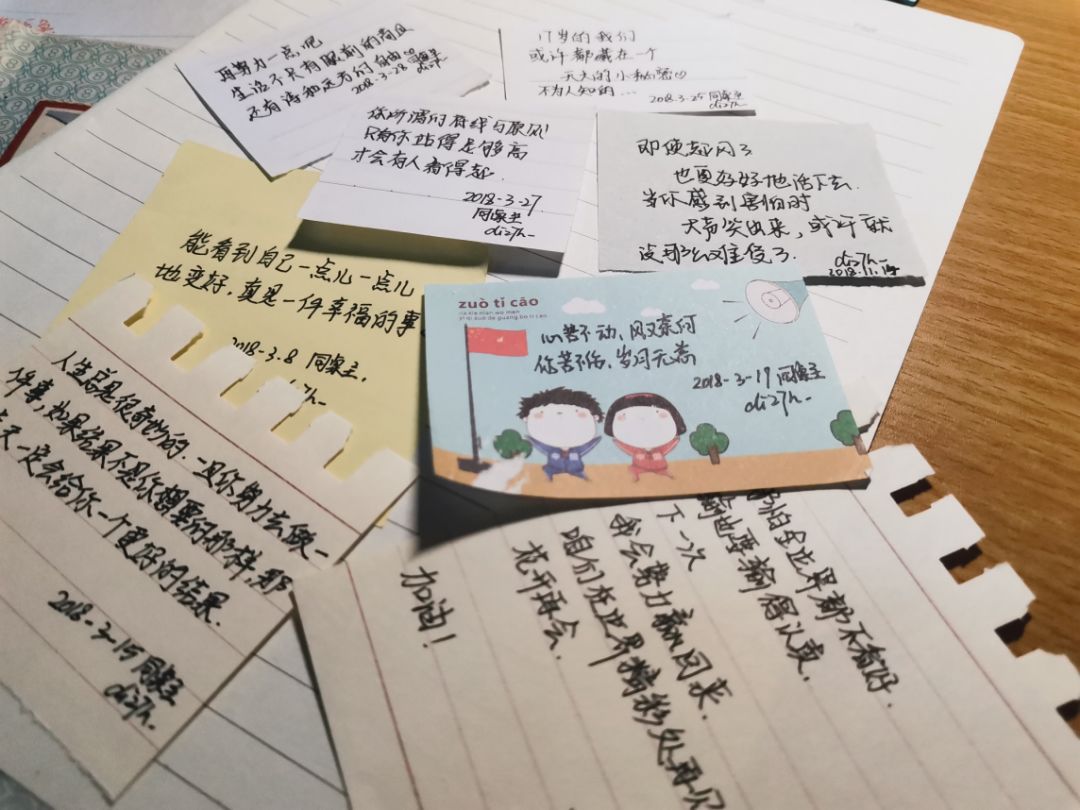 再努力一点吧
生活不只有眼前的苟且
还有诗和远方的自由
2018-3-28 同桌主
di27h-
17岁的我们
或许都藏在一个
天大的小秘密
不为人知的...
2018.3-25 同桌主
di27h-
你所谓的
只有你站得足够高
才会有人看得起.
2018-3-27
同桌主
di27h-
即使起风了
也要好好地活下去.
当你感到害怕时
大声笑出来,或许就
没那么难受了.
di27h-
2018.11.14
能看到自己一点儿一点儿
地变好,真是一件幸福的事.
2018-3-8 同桌主.
zuò ti cāo
心若不动,风又奈何
你若不伤,岁月无恙
2018-3-19 同桌主
di27h-
人生总是很奇妙的.一旦你努力去做一
件事,如果结果不是你想要的那样,那
天一定会给你一个更好的结果.
2018-3-15 同桌主
di27h-
哪怕全世界都不看好.
输也要输得认真.
下一次
我会努力赢回来.
咱们在世界精彩处再见
花开再会.
加油!